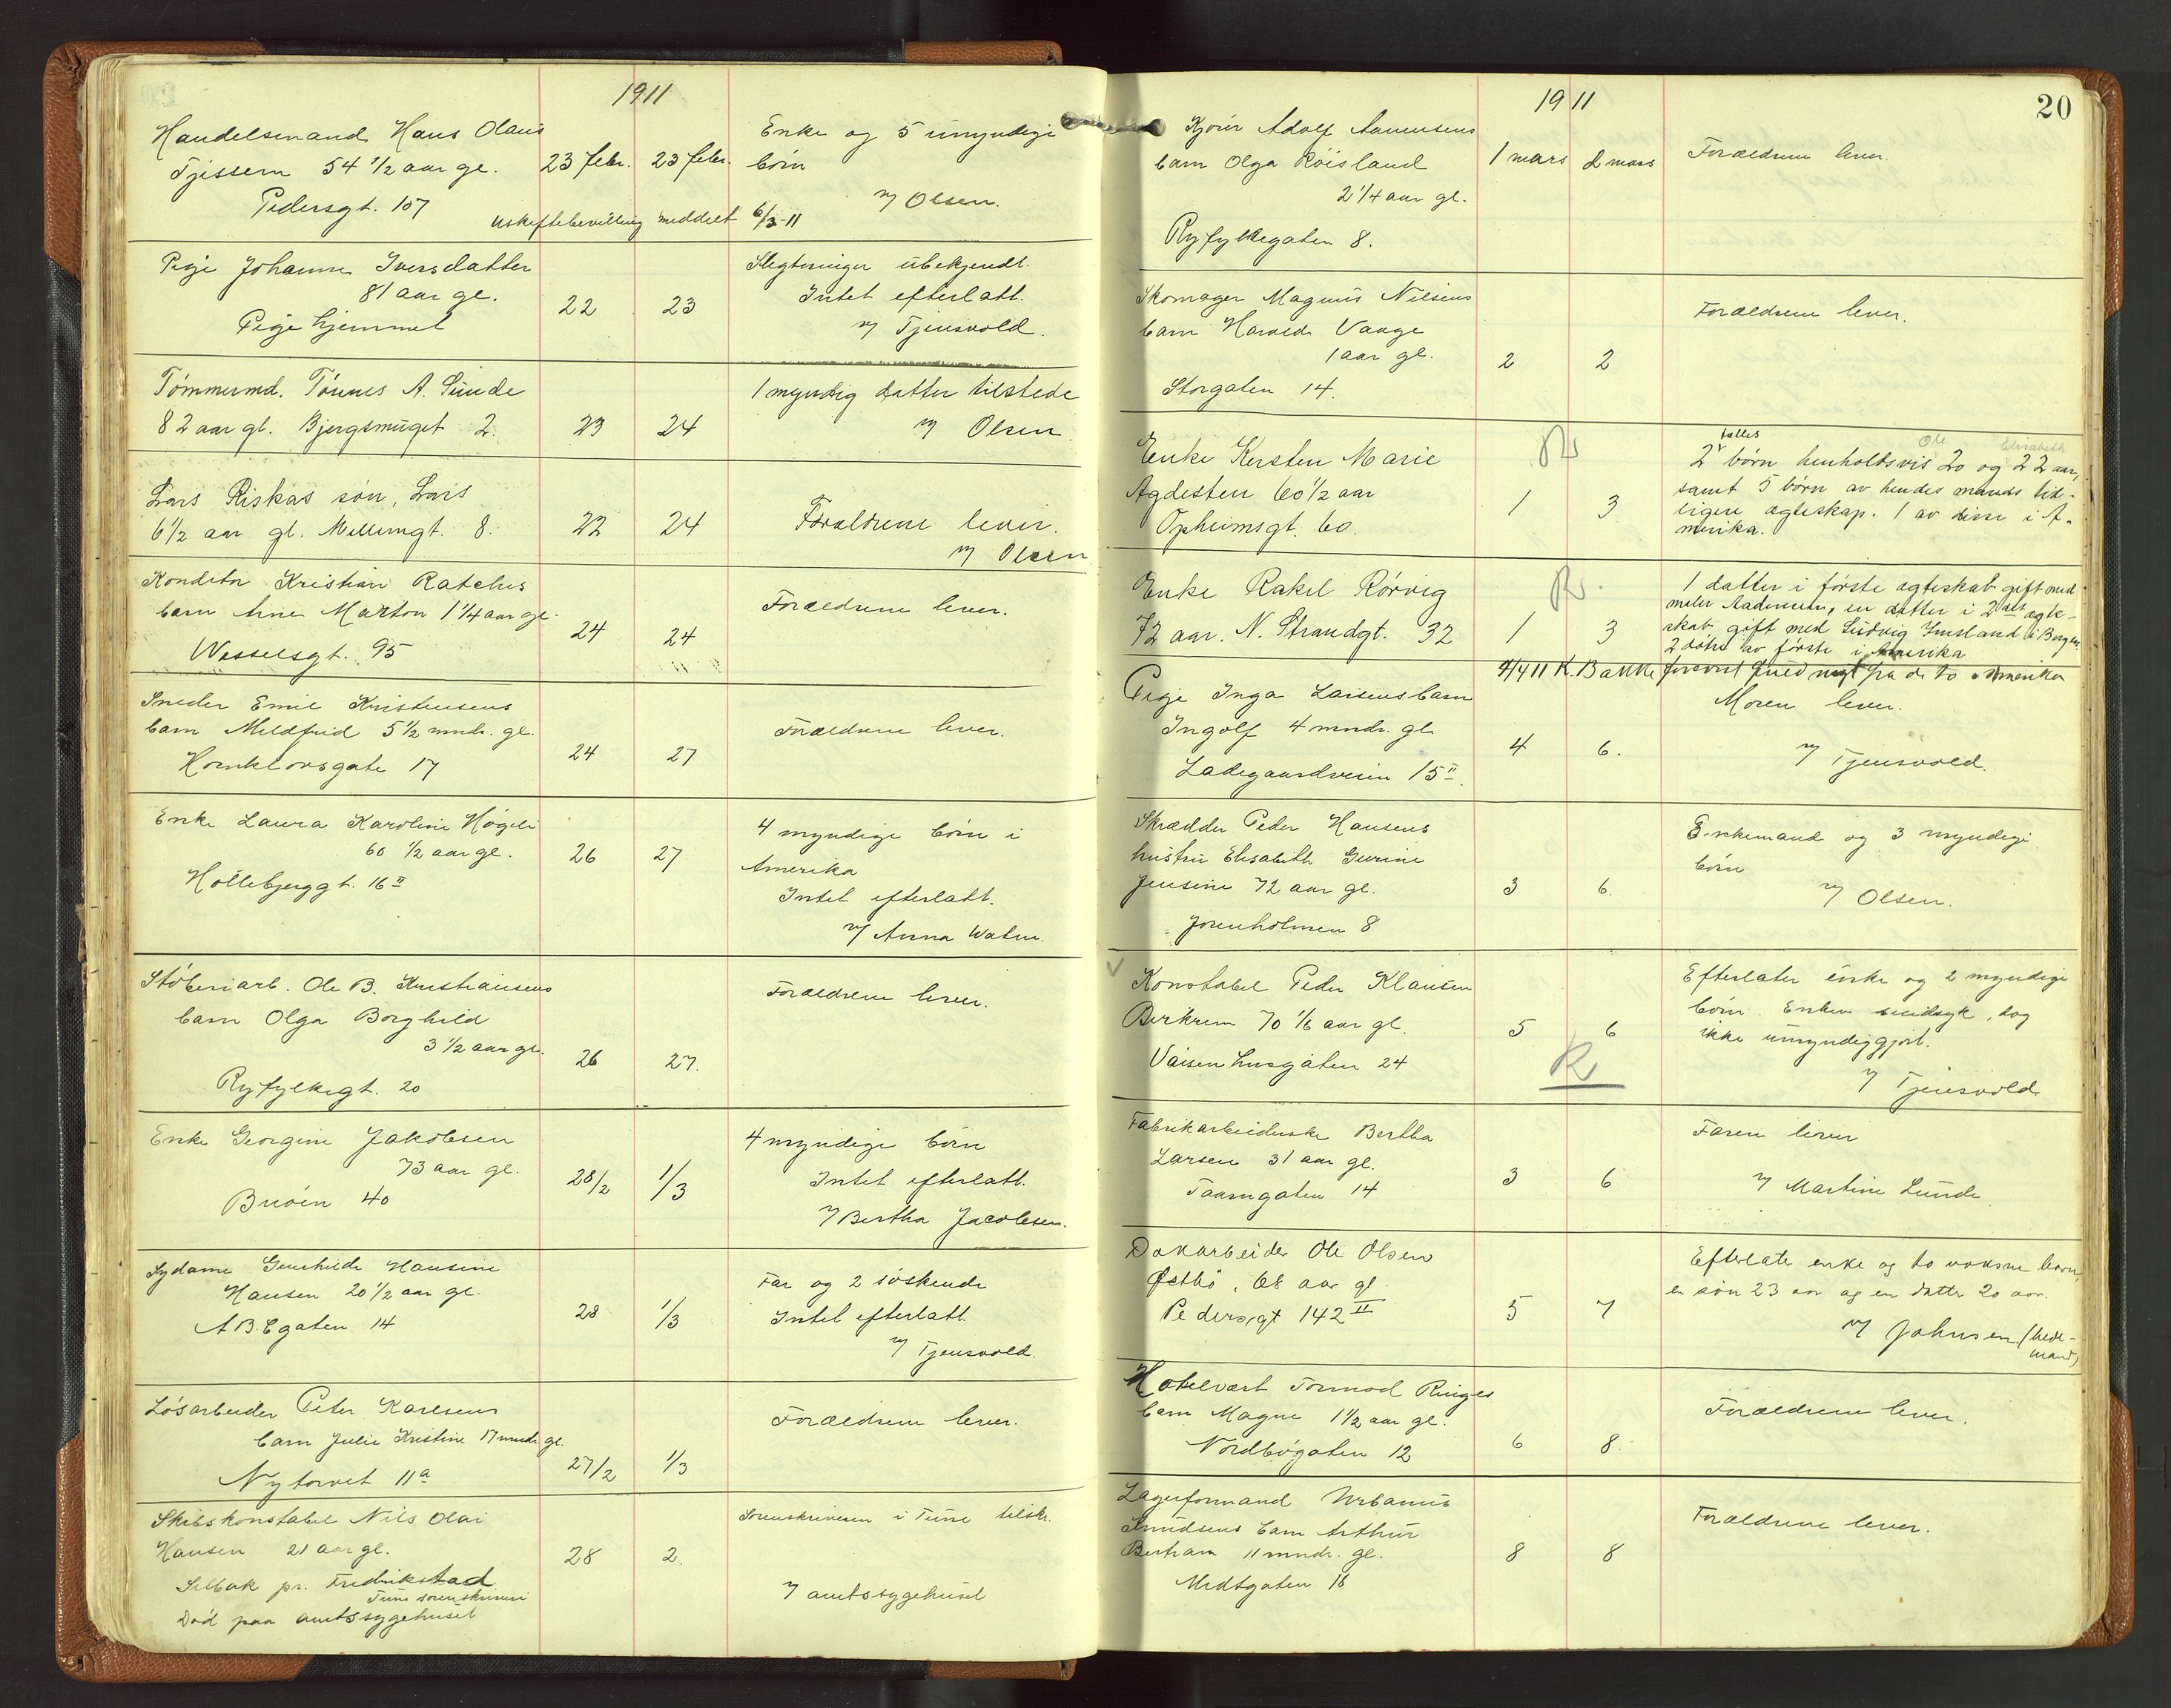 1911
Handelsmand Hans Olaus
Tjissem 54 1/2 aar gl. 23 febr. 23 febr.
Pedersgt. 107
Enke og 5 umyndige
børn
v/ Olsen.
Uskiftebevilling meddelt 6/3-11
Pige Johanne Iversdatter
81 aar gl.
Pigehjemmet
22 23
Slegtninger ubekjendt.
Intet efterlatt.
v/ Tjensvold.
Tømmermd. Tønnes A. Sunde
82 aar gl. Bjergsmuget 2. 23 24
1 myndig datter tilstede
v/ Olsen
Lars Riskas søn, Lars
6 1/2 aar gl. Mellemgt. 8. 22 24
Forældrene lever.
v/ Olsen
Konditor Kristian
barn Arne Marton 1 1/4 aar gl.
Wesselsgt. 95
24 24
Forældrene lever.
Snedker Emil Kristensens
barn Meldfrid 5 1/2 mndr. gl.
Hornklovsgate 17
24 27
Forældrene lever.
Enke Laura Karoline
60 1/2 aar gl.
16 II
26 27
4 myndige børn i
Amerika
Intet efterlatt.
v/ Anna
Støberiarb. Ole B. Kristiansens
barn Olga Borghild
3 1/2 aar gl.
Ryfylkegt. 20
26 27.
Forældrene lever.
Enke Georgine Jakobsen
73 aar gl.
40
28/2 1/3
4 myndige børn
Intet efterlatt.
v/ Bertha Jacobsen.
Sydame Gunhilde Hansine
Hansen 20 1/2 aar gl.
A B C gaten 14
28 1/3
Far og 2 søskende
Intet efterlatt.
v/ Tjensvold.
Løsarbeider Peter Karlsens
barn Julie Kristine 17 mndr. gl.
Nytorvet 11a
27/2 1/3
Forældrene lever.
Skibskonstabel Nils Olai
Hansen 21 aar gl.
Selbak pr. Fredrikstad
Tune sorenskriveri
Død paa amtssygehuset
28 2.
Sorenskriveren i Tune tilskr.
v/ amtssygehuset
1911
20
Kjører Adolf Aanensens
barn Olga Røisland
2 1/4 aar gl.
Ryfylkegaten 8.
1 mars 2 mars
Forældrene lever.
Skomager Magnus Nilsens
barn Harald Vaage
1 aar gl.
Storgaten 14.
2 2
Forældrene lever.
Enke Kirsten Marie
Agdesten 60 1/2 aar
Opheimsgt. 60.
R
1 3
fælles Ole Elisabeth
2 børn henholdsvis 20 og 22 aar,
samt 5 børn av hendes mands tid-
ligere ægteskap. 1 av disse i A-
merika.
Enke Rakel Rørvig
72 aar. N. Strandgt. 32
R.
1 3
1 datter i første ægteskab gift med
maler Aadnesen, en datter i 2det ægte-
skab gift med Ludvig Imsland i Bergen
2 døtre av første i Amerika
4/4 11 K. Bakke fra de to i Amerika
Pige Inga Larsens barn
Ingolf 4 mndr. gl.
Ladegaardsveien 15 II.
4 6.
Moren lever.
v/ Tjensvold.
Skrædder Peder Hansens
hustru Elisabeth Gurine
Jensine 72 aar gl.
Jorenholmen 8
3 6.
Enkemand og 3 myndige
børn
v/ Olsen.
V
Konstabel Peder Klausen
Birkrem 70 1/6 aar gl.
Vaisenhusgaten 24
5 6
R
Efterlater enke og 2 myndige
børn. Enken sindsyk, dog
ikke umyndiggjort.
v/ Tjensvold
Fabrikarbeiderske Bertha
Larsen 31 aar gl.
Taarngaten 14
3 6
Faren lever
v/ Martine Lunde
Dokarbeider Ole Olsen
Østbø, 68 aar gl.
Pedersgt 142 II
5 7
Efterlater enke og to voksne barn,
en søn 23 aar og en datter 20 aar.
v/ Johnsen (bede-
mand)
Hotelvært Tormod Ringes
barn Magne 1 1/2 aar gl.
Nordbøgaten 12
6 8.
Forældrene lever.
Lagerformand Urbanus
Knudsens barn Arthur
Bertram 11 mndr. gl.
Midtgaten 18
8 8
Forældrene lever.